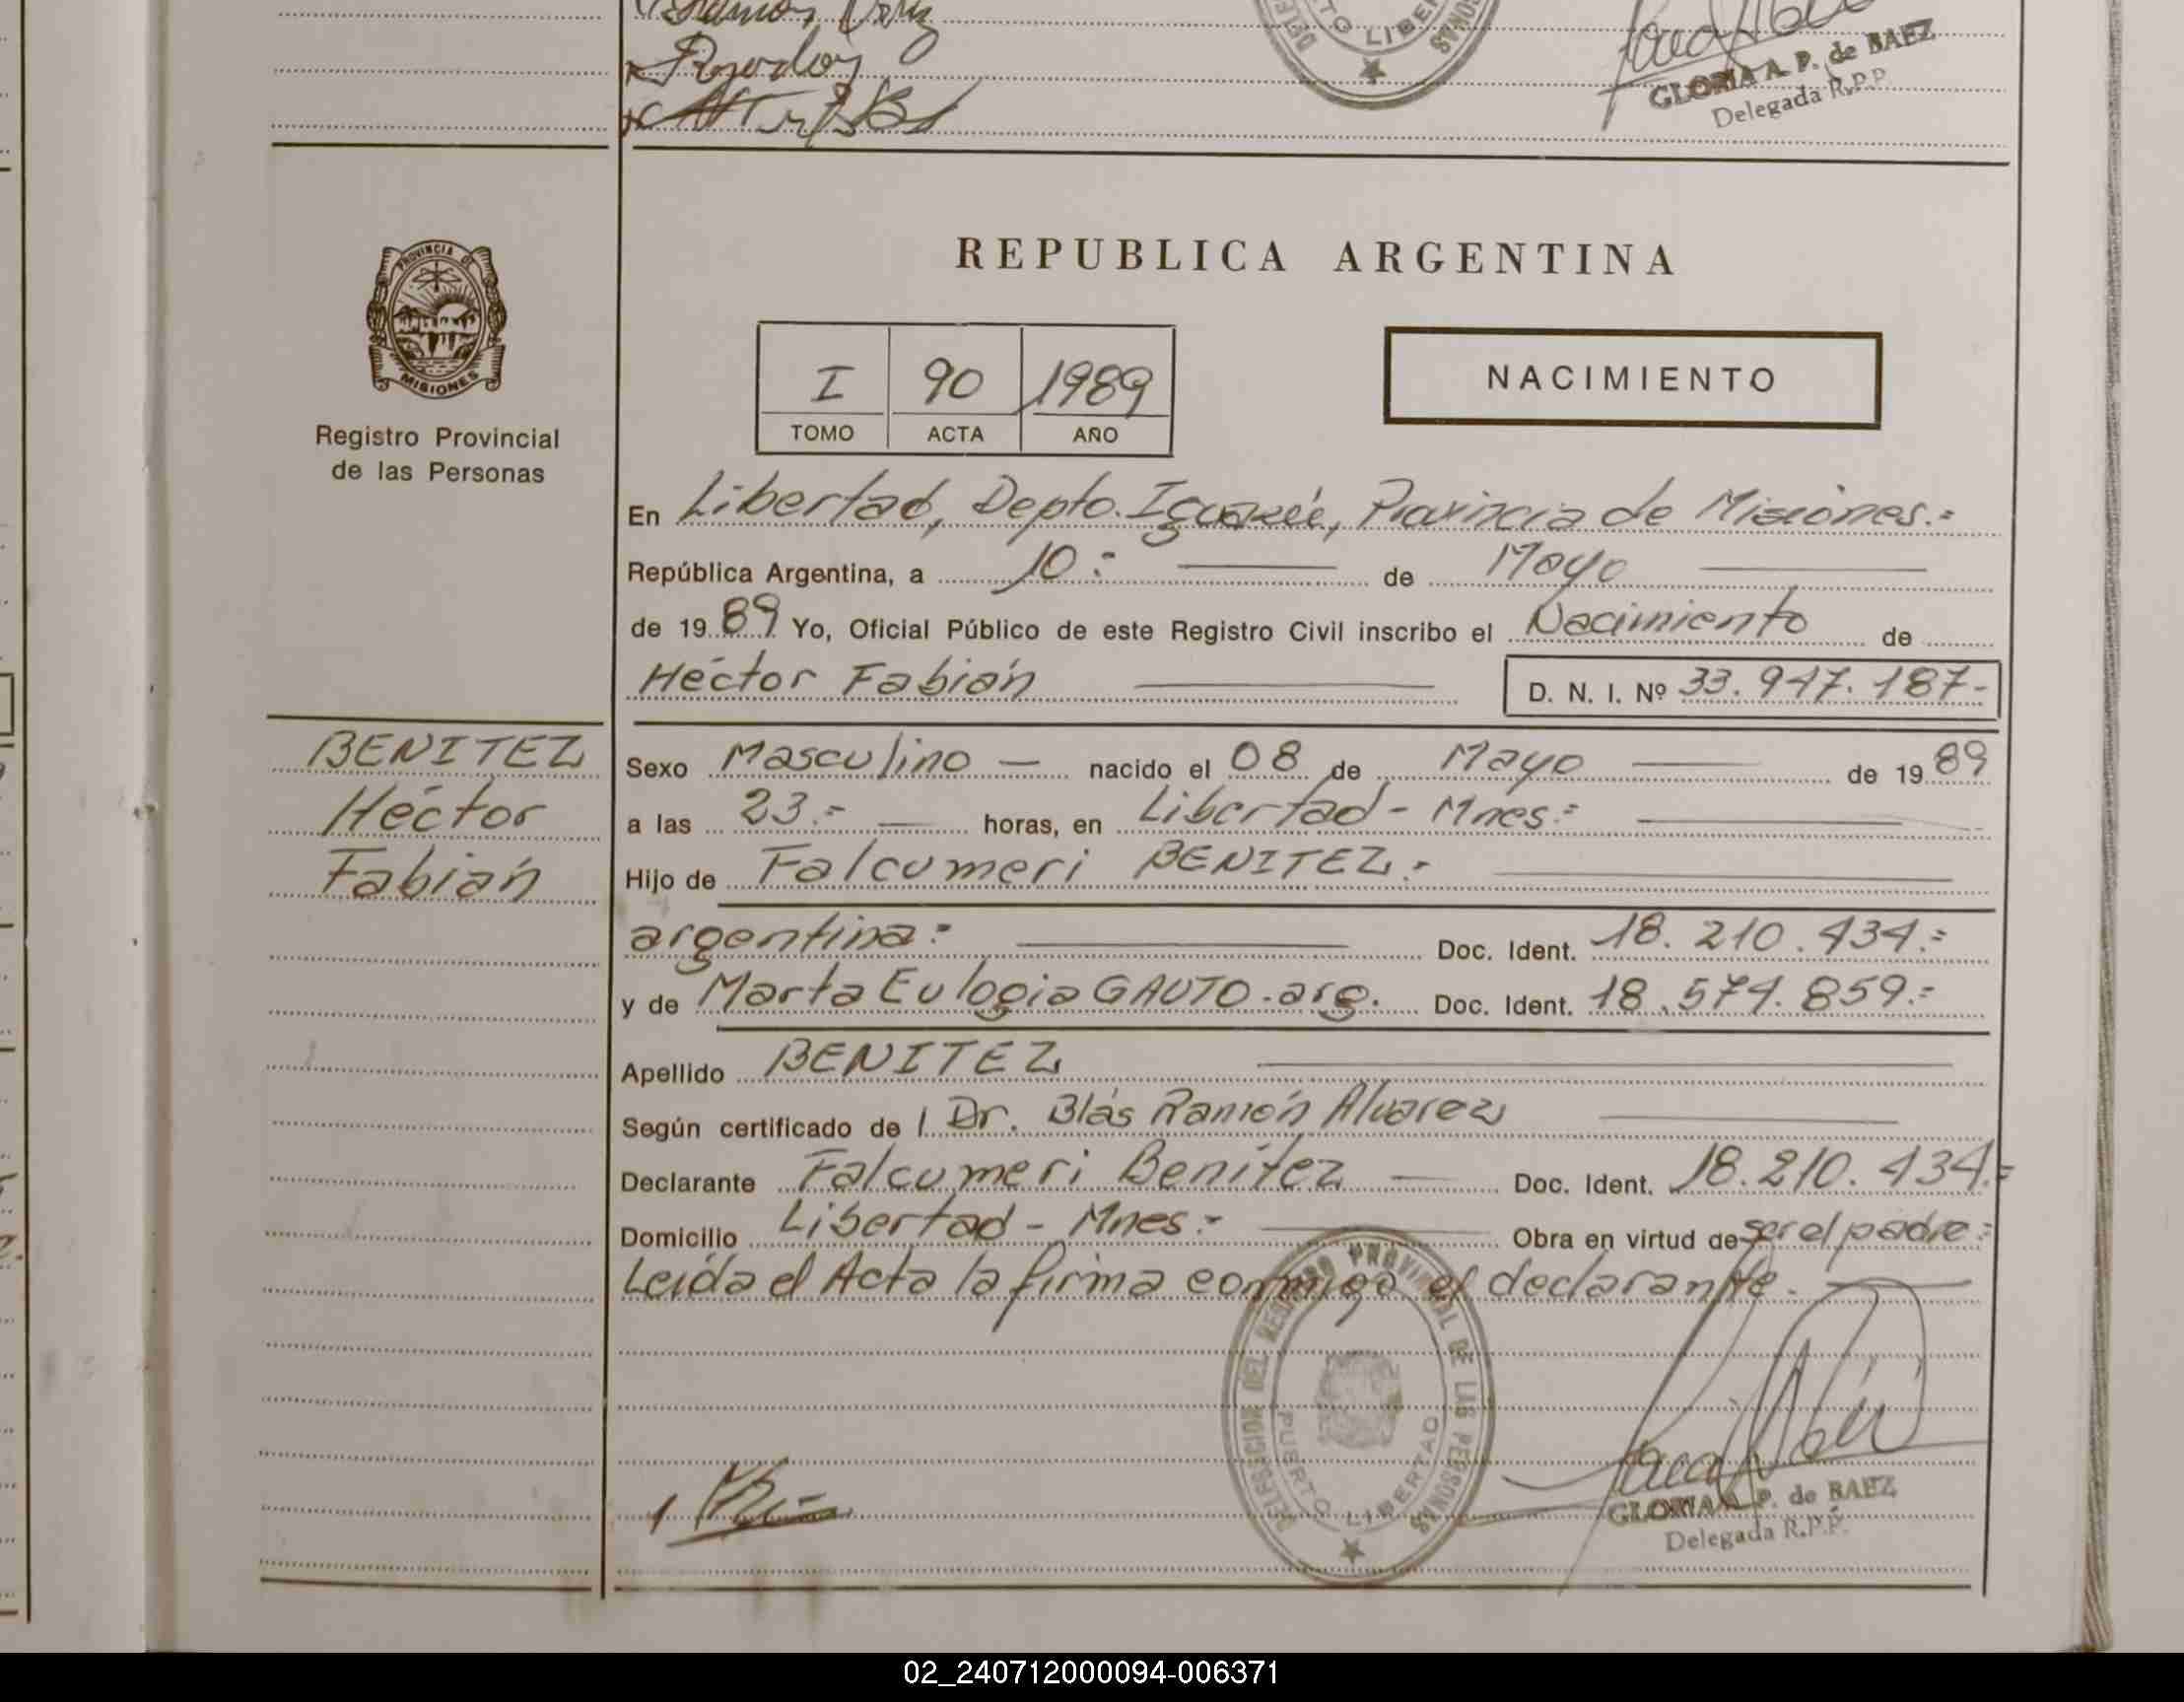 GLORIA A. P. de BAEZ
Delegada R.P.P.
PROVINCIA DE
MISIONES
Registro Provincial
de las Personas
REPUBLICA ARGENTINA
I 90 1989
TOMO ACTA AÑO
NACIMIENTO
En Libertad, Depto. Iguazú, Provincia de Misiones.=
República Argentina, a 10: de Mayo
de 1989 Yo, Oficial Público de este Registro Civil inscribo el Nacimiento de
Héctor Fabián D. N. I. Nº 33.947.187-
BENITEZ
Héctor
Fabián
Sexo Masculino — nacido el 08 de Mayo de 1989
a las 23.= horas, en Libertad - Mnes=
Hijo de Falcumeri BENITEZ.-
argentina= Doc. Ident. 18.210.434.=
y de Marta Eulogia GAUTO.arg. Doc. Ident. 18.574.859.=
Apellido BENITEZ
Según certificado de l Dr. Blás Ramón Alvarez
Declarante Falcumeri Benítez — Doc. Ident. 18.210.434.=
Domicilio Libertad - Mnes.- Obra en virtud de ser el padre=
Leída el Acta la firma conmigo el declarante.
DELEGACION DEL REGISTRO PROVINCIAL DE LAS PERSONAS
PUERTO LIBERTAD
GLORIA A. P. de BAEZ
Delegada R.P.P.
02_240712000094-006371